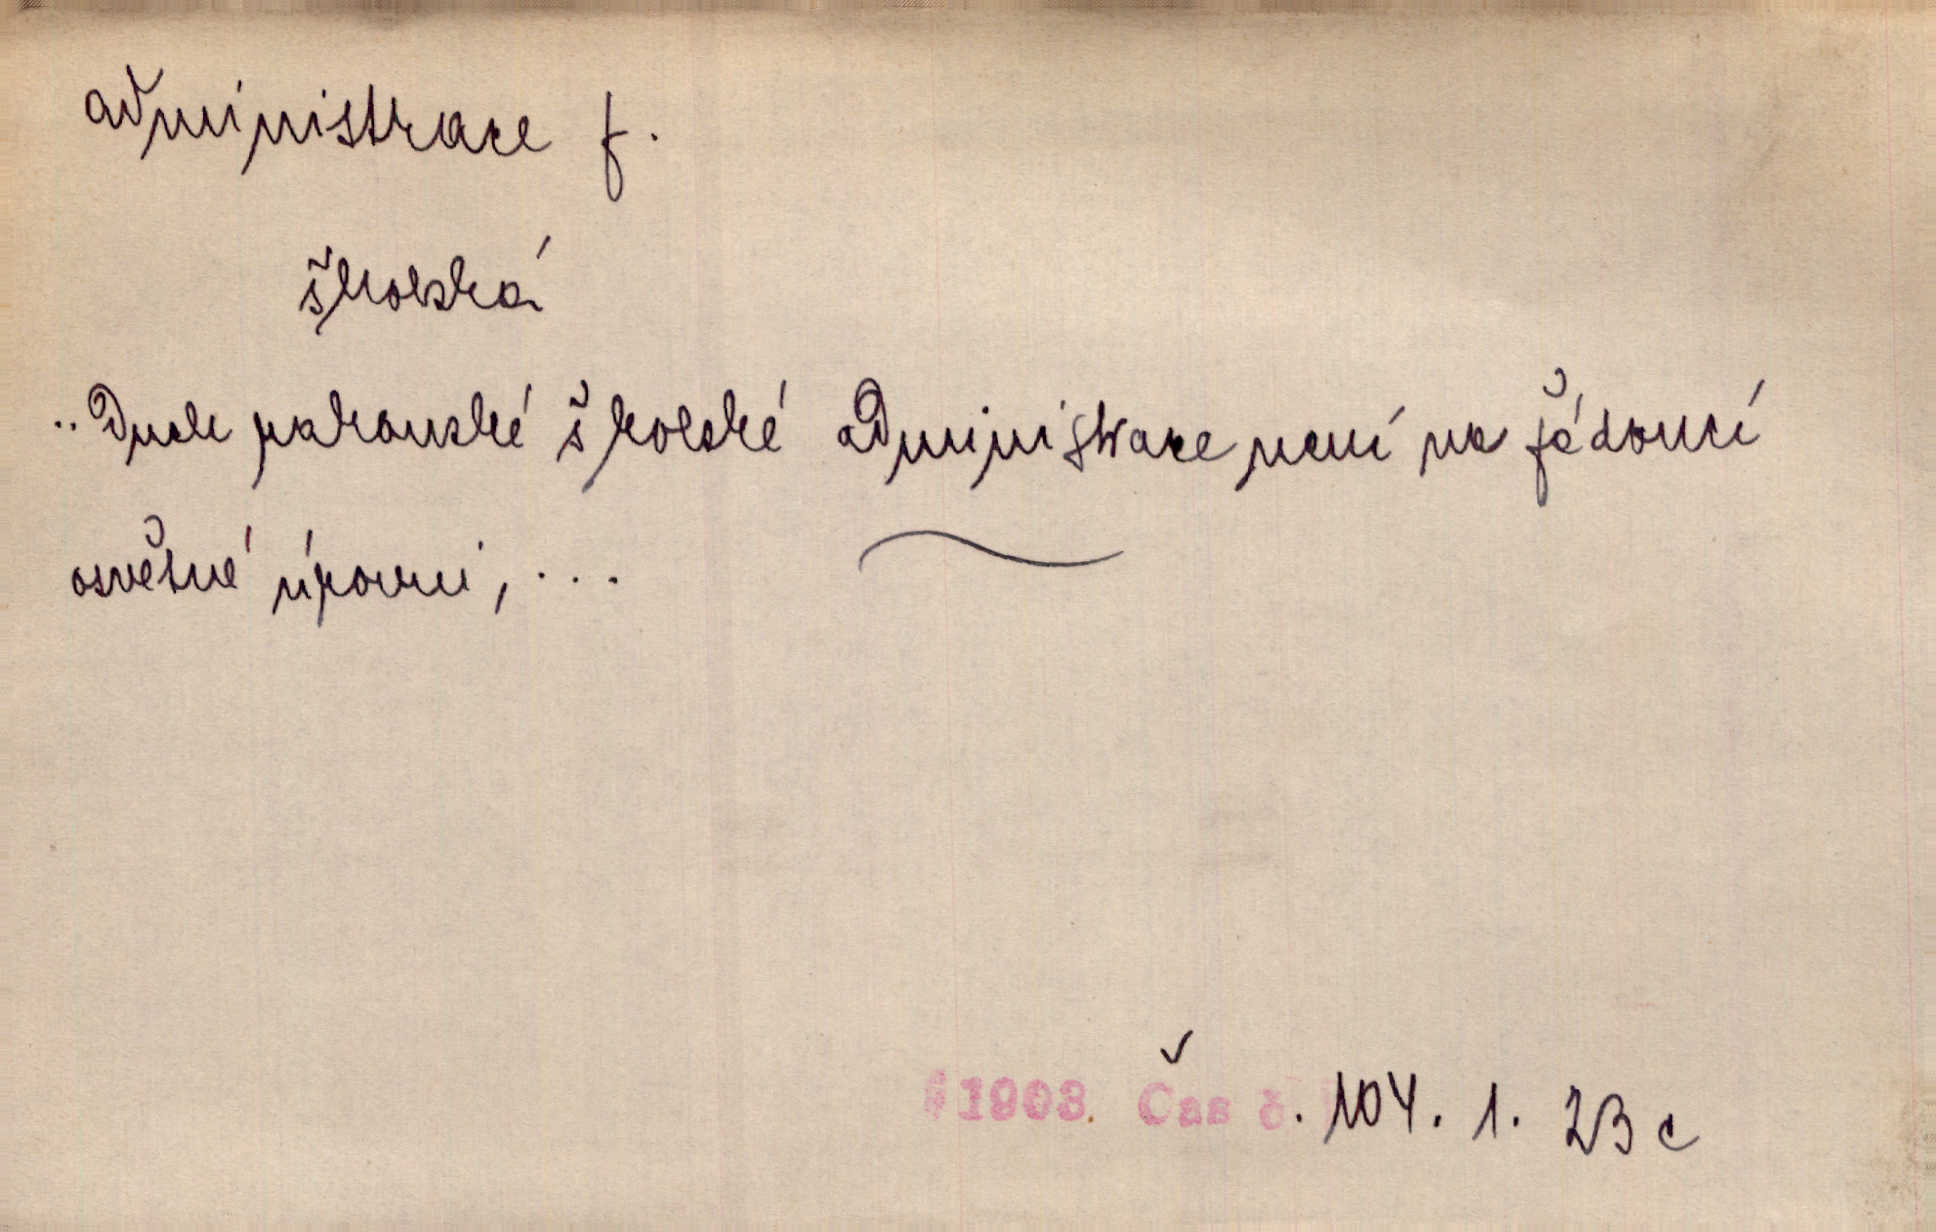 administrace f.
školská
.. Duch rakouské školské administrace není na žádoucí
osvětné úrovni, ...
1903. Čas č. 104. 1. 2B c